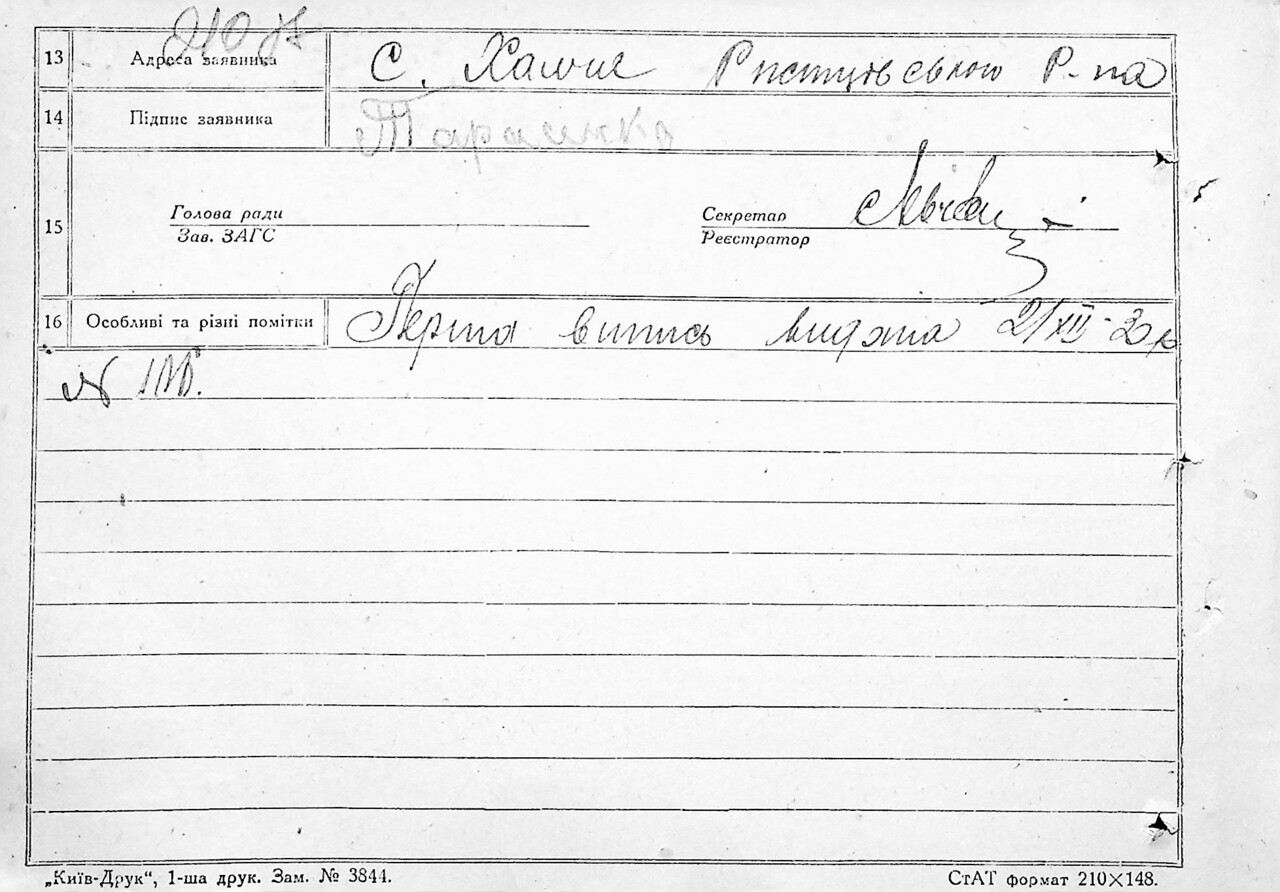 13 Адреса заявника С. Хальча Ржищівського р-на
14 Підпис заявника Тарасенко
15 Голова ради
Зав. ЗАГС
Секретар
Реєстратор
16 Особливі та різні помітки Перша випись видана 21/XII-30р
№
„Київ-Друк“, 1-ша друк. Зам. № 3844.
СтАТ формат 210×148.